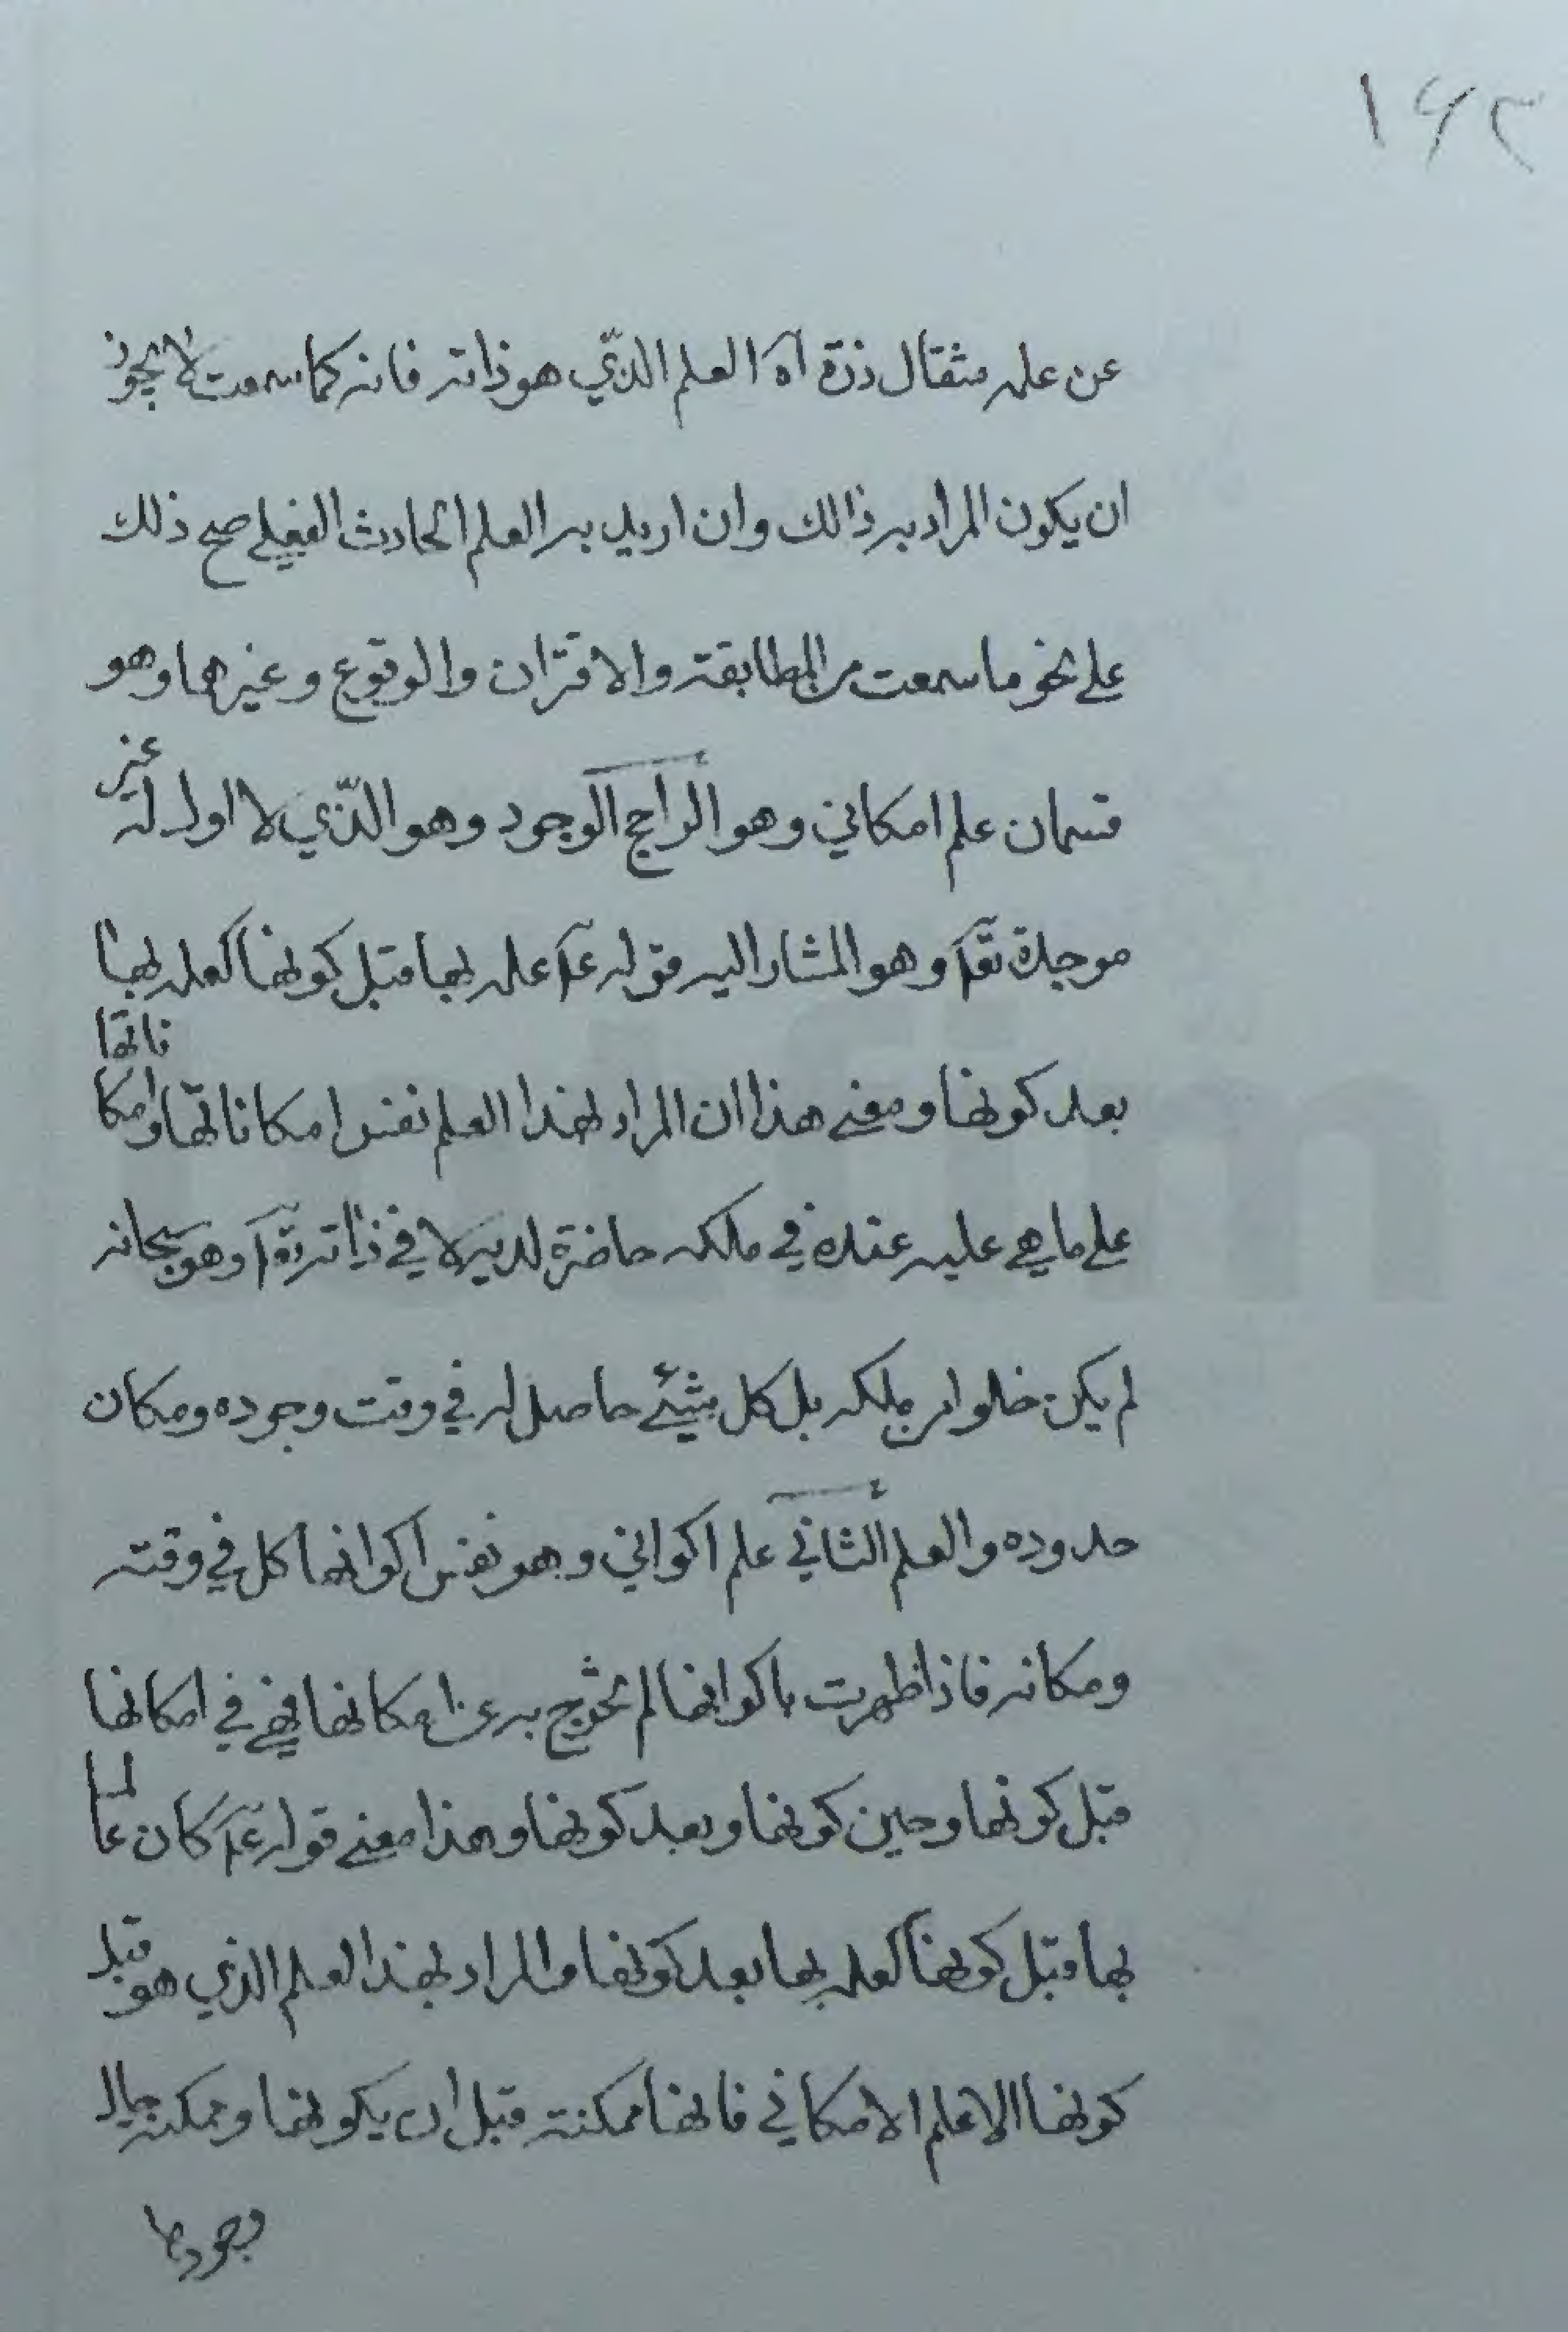 ١٦٢
عن علمه مثقال ذرة اه العلم الذّي هو ذاته فانه كما سمعت لا يجوز
ان يكون المراد به ذالك وان اريد به العلم الحادث الفعلي صح ذلك
على نحو ما سمعت من المطابقة والاقتران والوقوع وغيرها وهو
قسمان علم امكاني وهو الراجح الوجود وهو الذّي لا اول له غير
موجده تع‍ وهو المشار اليه قوله ع‍ علمه بها قبل كونها كعلمه بها
بعد كونها ومعنى هذا ان المراد بهذا العلم نفس امكاناتها وامكاناتها
على ما هي عليه عنده في ملكه حاضرة لديه لا في ذاته تع‍ وهو سبحانه
لم يكن خلوا من ملكه بل كل شيئ حاصل له في وقت وجوده ومكان
حدوده والعلم الثاني علم اكواني وهو نفس اكوانها كل في وقته
ومكانه فاذا ظهرت باكوانها لم تخرج به عن امكانها فهي في امكانها
قبل كونها وحين كونها وبعد كونها وهذا معنى قوله ع‍ كان عالما
بها قبل كونها كعلمه بها بعد كونها والمراد بهذا العلم الذي هو قبل
كونها الا علم الامكاني فانها ممكنة قبل ان يكونها وممكنة حال
وجودها